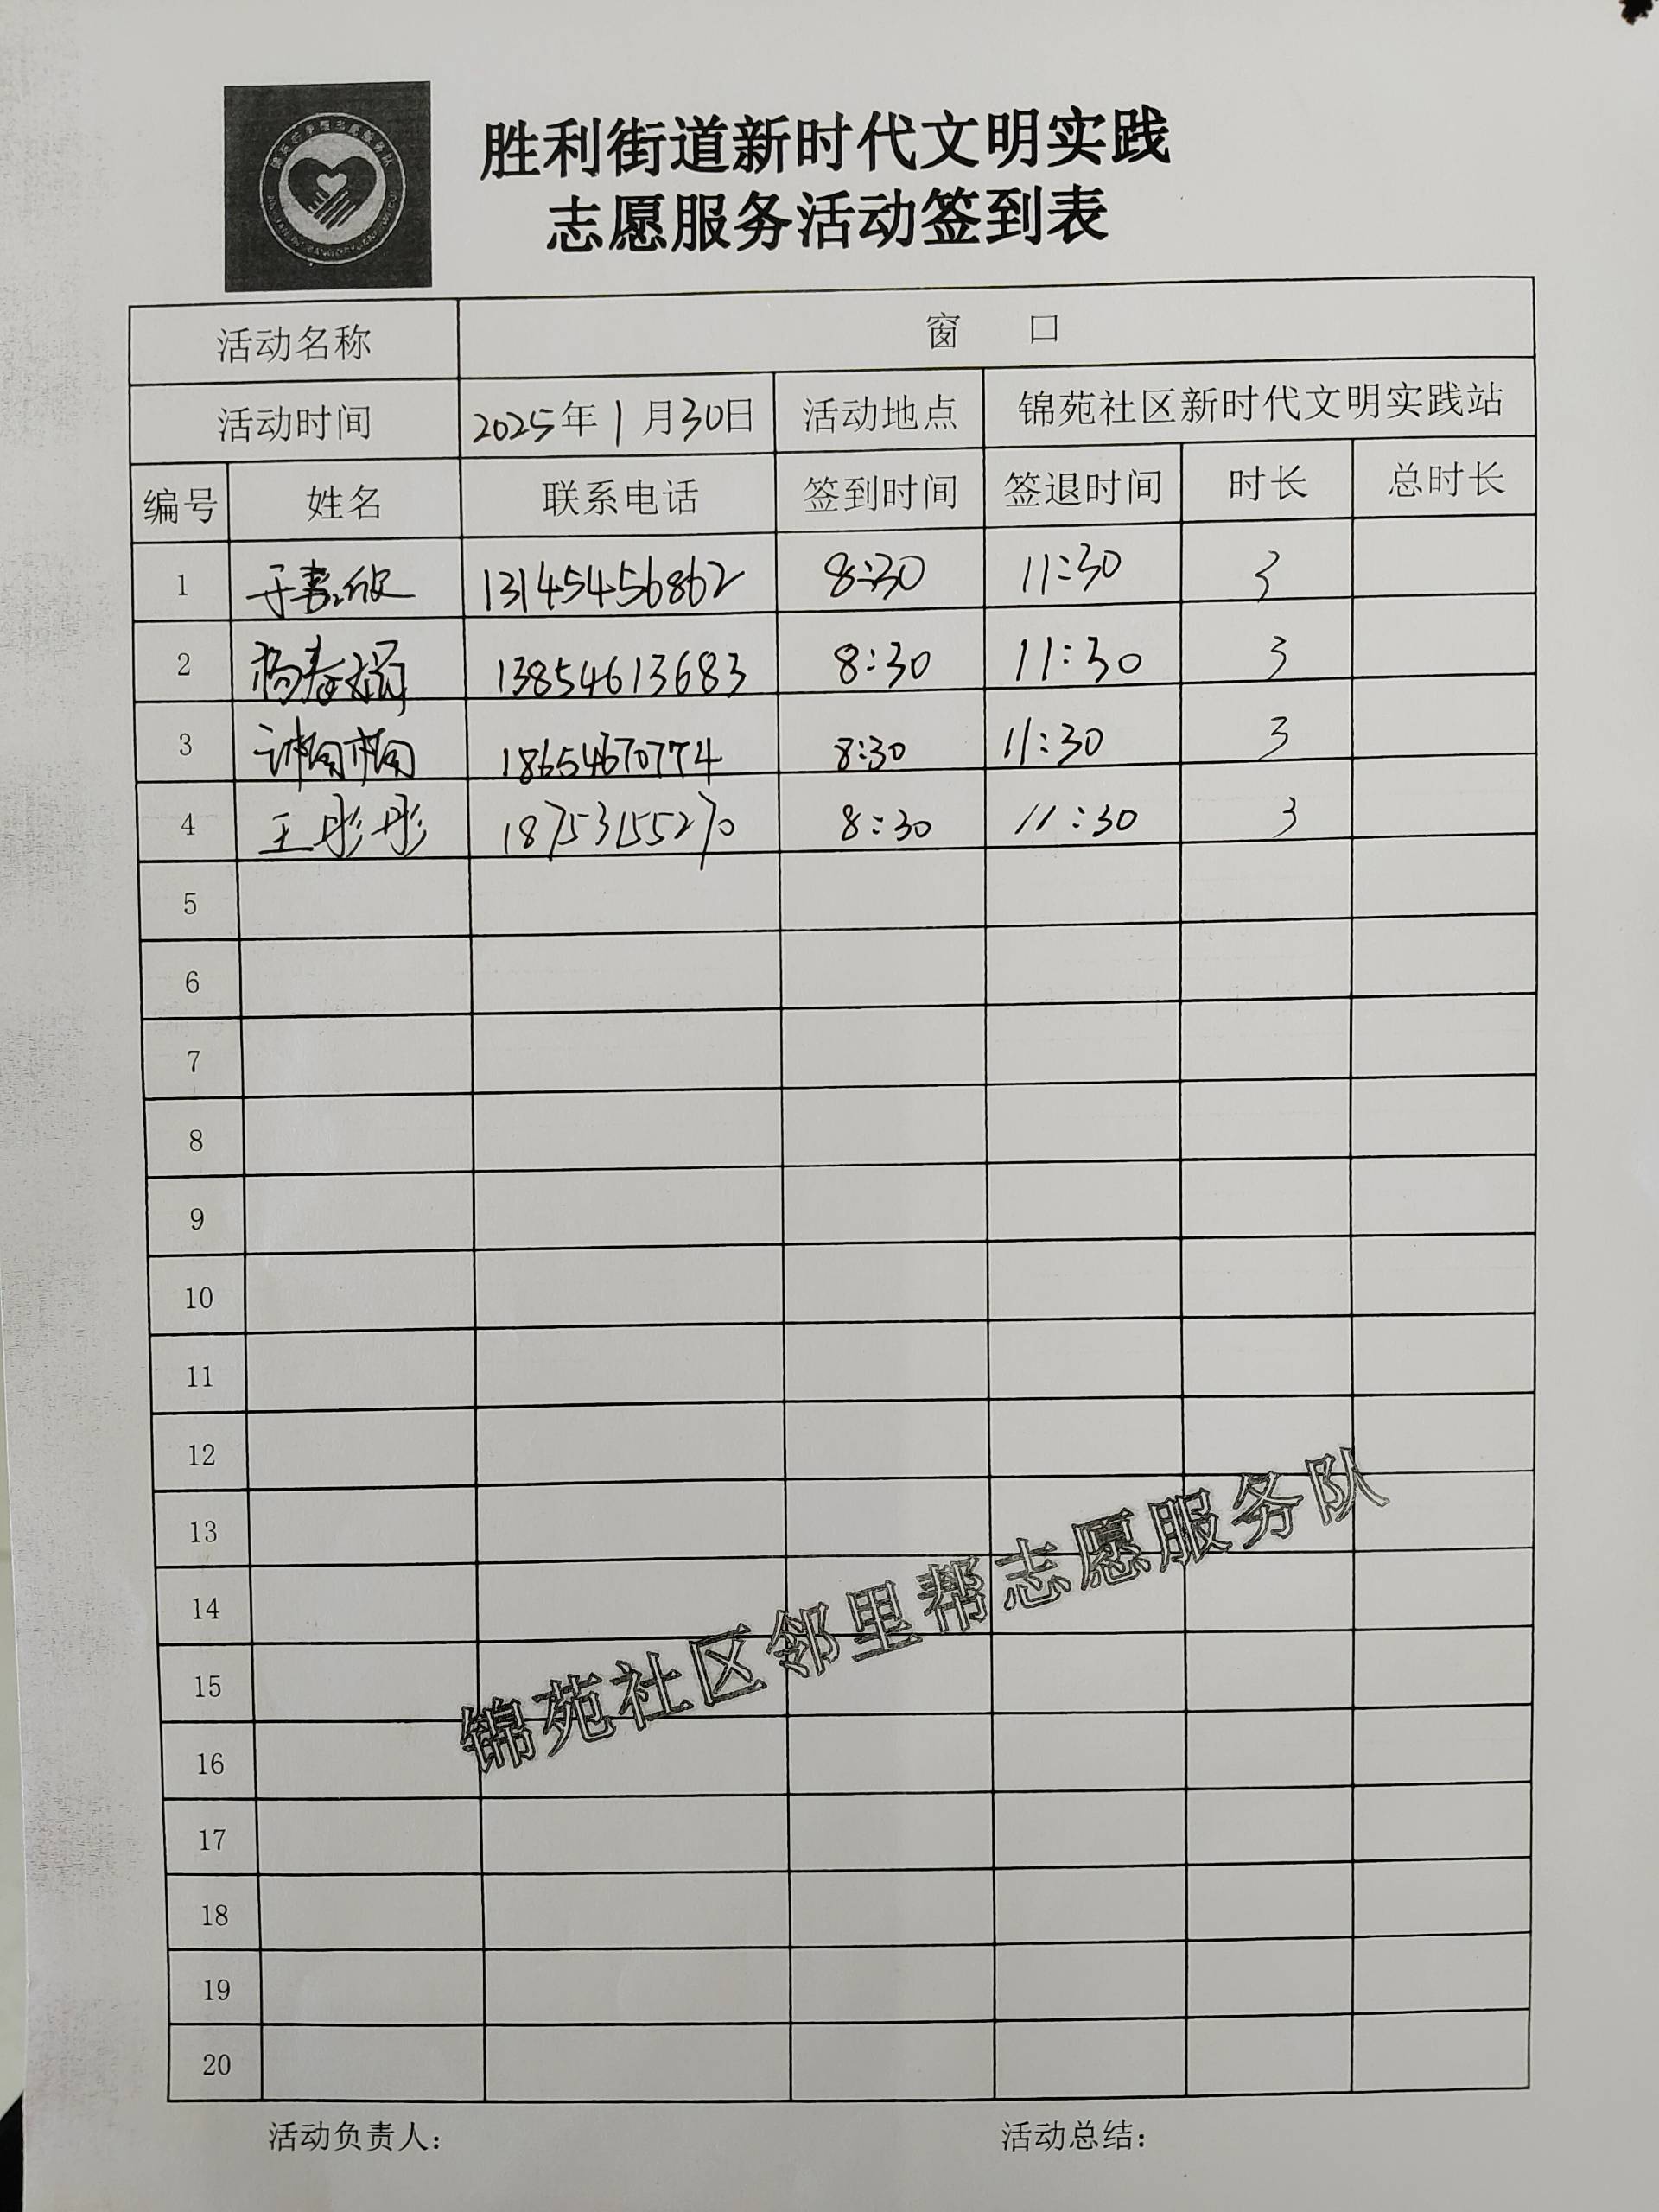 胜利街道新时代文明实践
志愿服务活动签到表
活动名称 窗 口
活动时间 2025年1月30日 活动地点 锦苑社区新时代文明实践站
编号 姓名 联系电话 签到时间 签退时间 时长 总时长
1 于嘉欣 13145456862 8:30 11:30 3
2 杨春娟 13854613683 8:30 11:30 3
3 18654670774 8:30 11:30 3
4 王彤彤 18753155270 8:30 11:30 3
5
6
7
8
9
10
11
12
13
14
15
16
17
18
19
20
锦苑社区邻里帮志愿服务队
活动负责人： 活动总结：